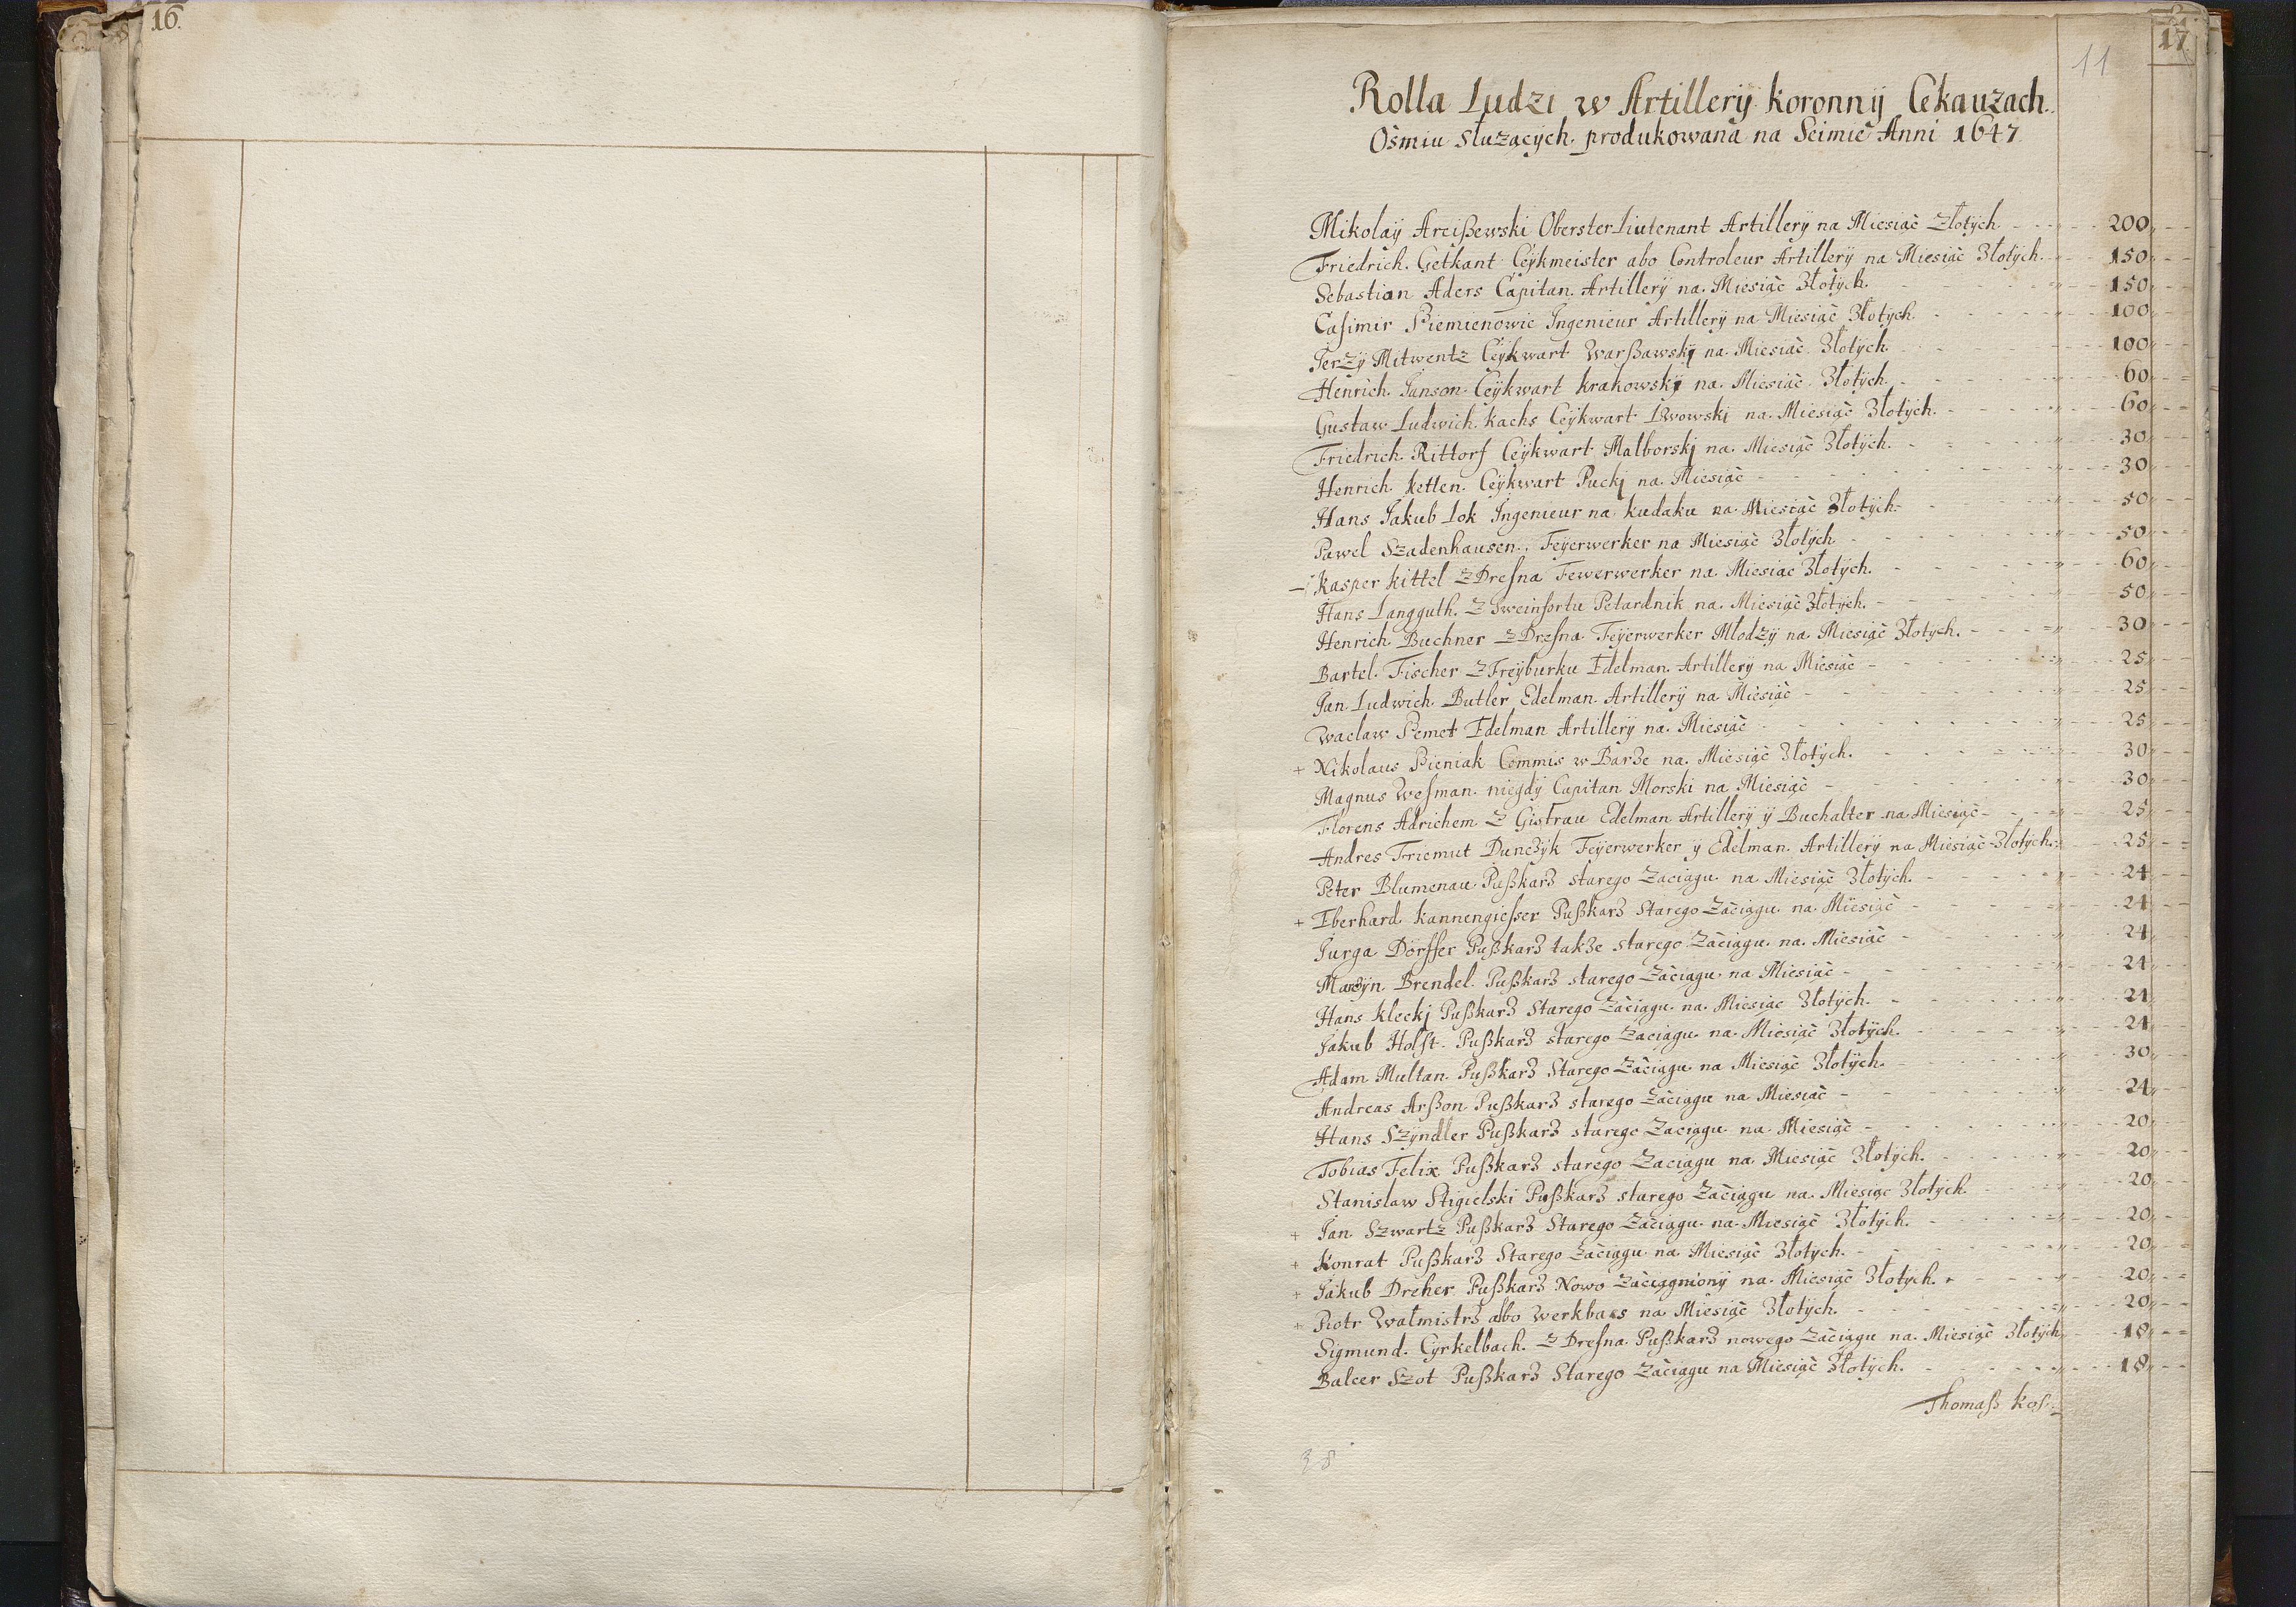 16.
11
17
Rolla Ludzi w Artillerÿ koronnÿ Cekauzach.
Ośmiu służących. produkowana na Seimie Anni 1647
Mikolaÿ Arcißewski Oberster Liutenant Artillerÿ na Miesiąc Złotÿch 200
Friedrich. Getkant Ceÿkmeister abo Controleur Artillerÿ na Miesiąc Złotÿch. 150
Sebastian Aders Capitan. Artillerÿ na. Miesiąc Złotÿch. 150
Casimir Siemienowic Ingenieur Artillerÿ na Miesiąc Złotÿch 100
Jerzÿ Mitwentz Ceÿkwart Warßawskÿ na. Miesiąc. Złotÿch. 100
Henrich. Janson. Ceÿkwart krakowskÿ na. Miesiąc. Złotÿch. 60
Gustaw Ludwich. kachs Ceÿkwart Lwowski na. Miesiąc Złotÿch. 60
Friedrich. Rittorf Ceÿkwart Malborskj na. Miesiąc Złotÿch. 30
Henrich. ketten. Ceÿkwart Puckj na. Miesiąc 30
Hans Jakub Lok Ingenieur na kudaku na Miesiąc Złotÿch. 50
Pawel Szadenhausen. Feÿerwerker na Miesiąc Złotÿch 50
kasper kittel z Dresna Fewerwerker na. Miesiąc Złotÿch. 60
Hans Langguth. z Sweinfortu Petardnik na. Miesiąc Złotÿch. 50
Henrich Buchner z Dresna Feÿerwerker Młodzÿ na Miesiąc Złotÿch. 30
Bartel. Fischer z Freÿburku Edelman. Artillerÿ na Miesiąc 25
Jan Ludwich Butler Edelman. Artillerÿ na Miesiąc 25
Waclaw Pemet Edelman Artillerÿ na. Miesiąc 25
+ Nikolaus Pieniak Commis w Barze na. Miesiąc Złotÿch. 30
Magnus Wesman. niegdÿ Capitan Morski na Miesiąc 30
Florens Adrichem z Gistrau Edelman Artillerÿ ÿ Buchalter na Miesiąc 25
Andres Friemut Dunczÿk Feÿerwerker ÿ Edelman. Artillerÿ na Miesiąc Złotÿch. 25
Peter Blumenau Pußkarz starego Zaciągu na Miesiąc Złotÿch. 24
+ Eberhard kannengiesser Pußkarz Starego Zaciągu na. Miesiąc 24
Jurga Dörffer Pußkarz takze starego Zaciągu na. Miesiąc 24
Marcÿn Brendel. Pußkarz starego Zaciągu na Miesiąc 24
Hans kleckj Pußkarz Starego Zaciągu na. Miesiąc Złotÿch. 24
Jakub Holst. Pußkarz starego Zaciągu na. Miesiąc Złotÿch. 24
Adam Multan Pußkarz Starego Zaciągu na Miesiąc Złotÿch. 30
Andreas Arßon Pußkarz starego Zaciągu na Miesiąc 24
Hans Szÿndler Pußkarz starego Zaciągu na Miesiąc 20
Tobias Felix Pußkarz starego Zaciągu na Miesiąc Złotÿch. 20
Stanislaw Stigielski Pußkarz starego Zaciągu na. Miesiąc Złotÿch 20
+ Jan Szwartz Pußkarz Starego Zaciągu na Miesiąc Złotÿch. 20
+ Konrat Pußkarz Starego Zaciągu na Miesiąc Złotÿch. 20
+ Jakub Dreher Pußkarz Nowo Zaciągnionÿ na. Miesiąc Złotÿch. 20
+ Piotr Watmistrz abo Werkbaas na Miesiąc Złotÿch. 20
Sigmund. Cyrkelbach. z Dresna Pußkarz nowego Zaciągu na. Miesiąc Złotÿch 18
Balcer Szot Pußkarz Starego Zaciągu na Miesiąc Złotÿch. 18
Thomaß kos
38